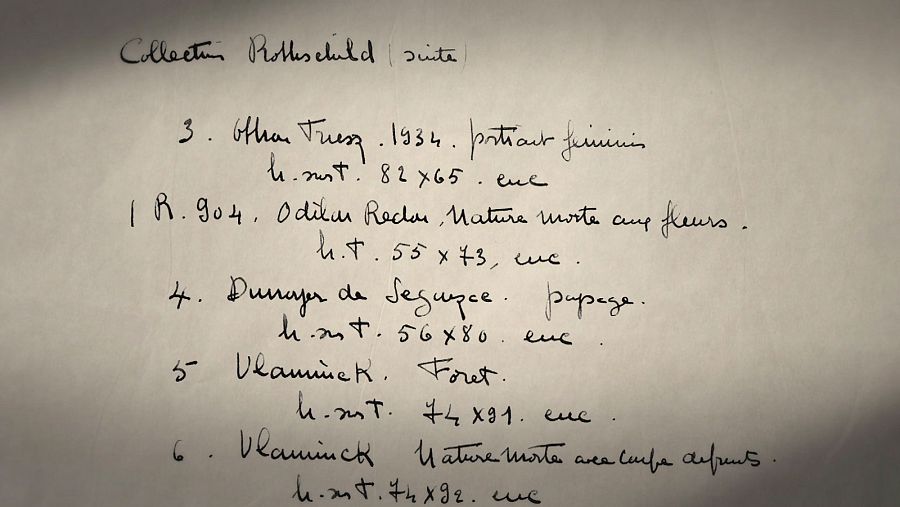 Collection Rothschild (suite)
3. Othon Friesz. 1934. portrait féminin
h. sur T. 82 x 65. enc
R. 904. Odilon Redon, Nature morte aux fleurs.
h. T. 55 x 73, enc.
4. Dunoyer de Segonzac. paysage.
h. sur T. 56 x 80. enc.
5 Vlaminck. Foret.
h. sur T. 74 x 91. enc.
6. Vlaminck Nature morte avec coupe de fruits.
h. sur T. 74 x 92. enc